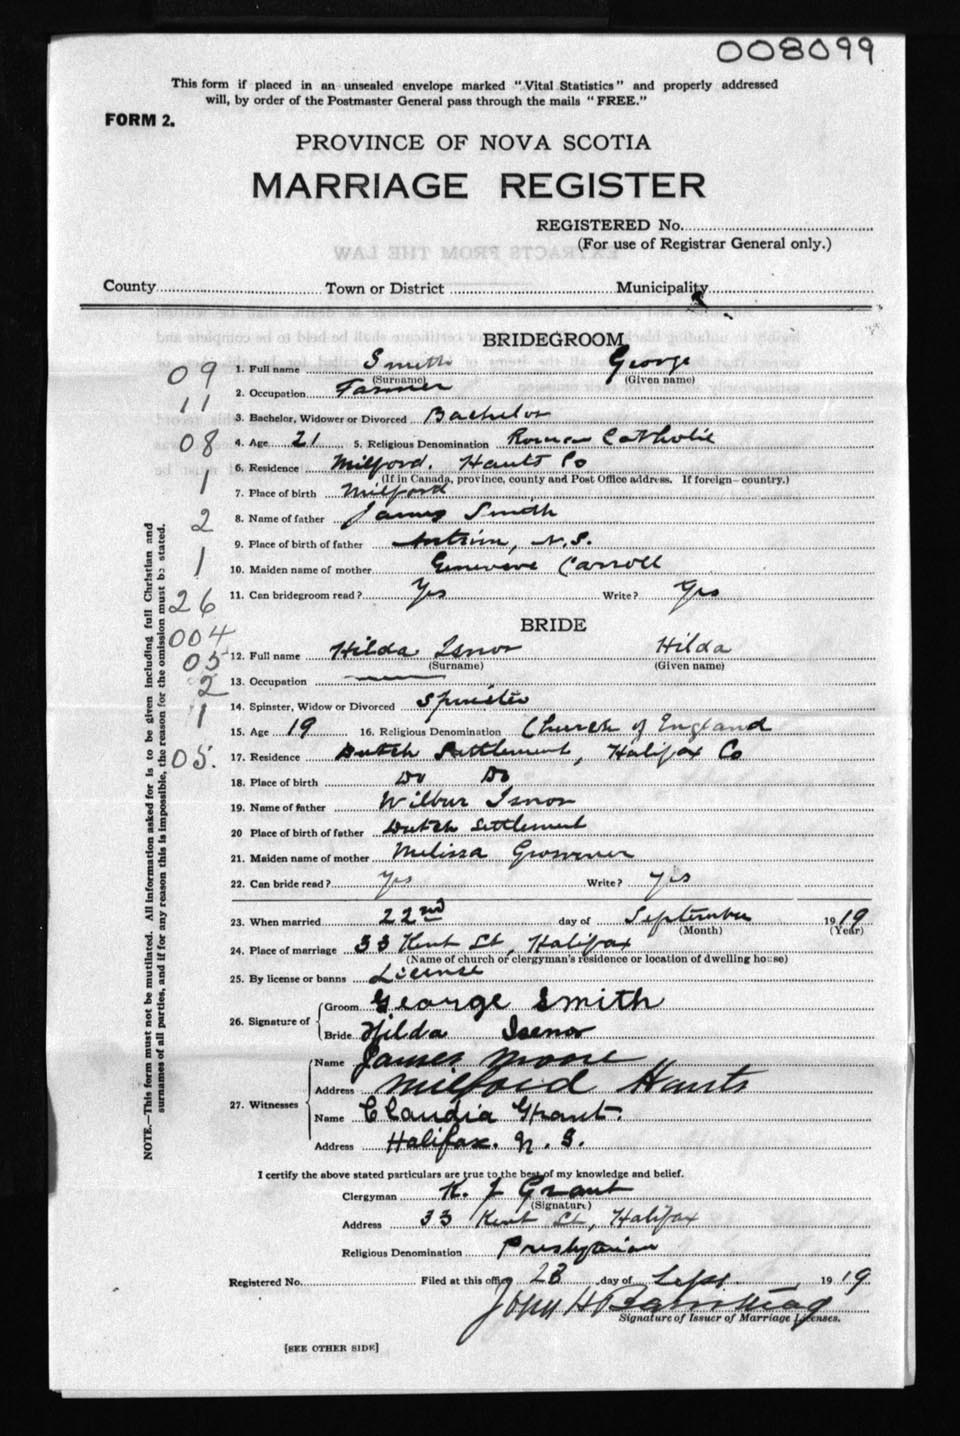 008099
This form if placed in an unsealed envelope marked "Vital Statistics" and properly addressed
will, by order of the Postmaster General pass through the mails "FREE."
FORM 2.
PROVINCE OF NOVA SCOTIA
MARRIAGE REGISTER
REGISTERED No.
(For use of Registrar General only.)
EXTRACTS FROM THE LAW
County Town or District Municipality
BRIDEGROOM
09 1. Full name Smith George
(Surname) (Given name)
11 2. Occupation Farmer
3. Bachelor, Widower or Divorced Bachelor
08 4. Age 21 5. Religious Denomination Roman Catholic
6. Residence Milford. Hants Co
(If in Canada, province, county and Post Office address. If foreign—country.)
1 7. Place of birth Milford
2 8. Name of father James Smith
9. Place of birth of father Antrim, N.S.
1 10. Maiden name of mother Genevieve Carroll
26 11. Can bridegroom read? Yes Write? Yes
BRIDE
004
05 12. Full name Hilda Isnor Hilda
(Surname) (Given name)
2 13. Occupation
1 14. Spinster, Widow or Divorced Spinster
15. Age 19 16. Religious Denomination Church of England
05. 17. Residence Dutch Settlement, Halifax Co
18. Place of birth Do Do
19. Name of father Wilbur Isnor
20 Place of birth of father Dutch Settlement
21. Maiden name of mother Melissa
22. Can bride read? Yes Write? Yes
23. When married 22nd day of September 1919
(Month) (Year)
24. Place of marriage 33 Kent St, Halifax
(Name of church or clergyman's residence or location of dwelling house)
25. By license or banns License
26. Signature of Groom George Smith
Bride Hilda Isenor
27. Witnesses Name James Moore
Address Milford Hants
Name Claudia Grant.
Address Halifax. N. S.
I certify the above stated particulars are true to the best of my knowledge and belief.
Clergyman K. J Grant
(Signature)
Address 33 Kent St, Halifax
Religious Denomination Presbyterian
Registered No. Filed at this office 23 day of Sept. 1919.
John H
Signature of Issuer of Marriage Licenses.
[SEE OTHER SIDE]
NOTE.—This form must not be mutilated. All information asked for is to be given including full Christian and
surnames of all parties, and if for any reason this is impossible, the reason for the omission must be stated.